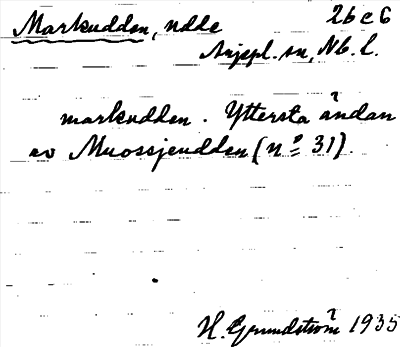 Markudden, udde 26 c 6
Arjepl. sn, Nb. l.
markudden. Yttersta ändan
av Muossjeudden (nº 31).
H. Grundström 1935